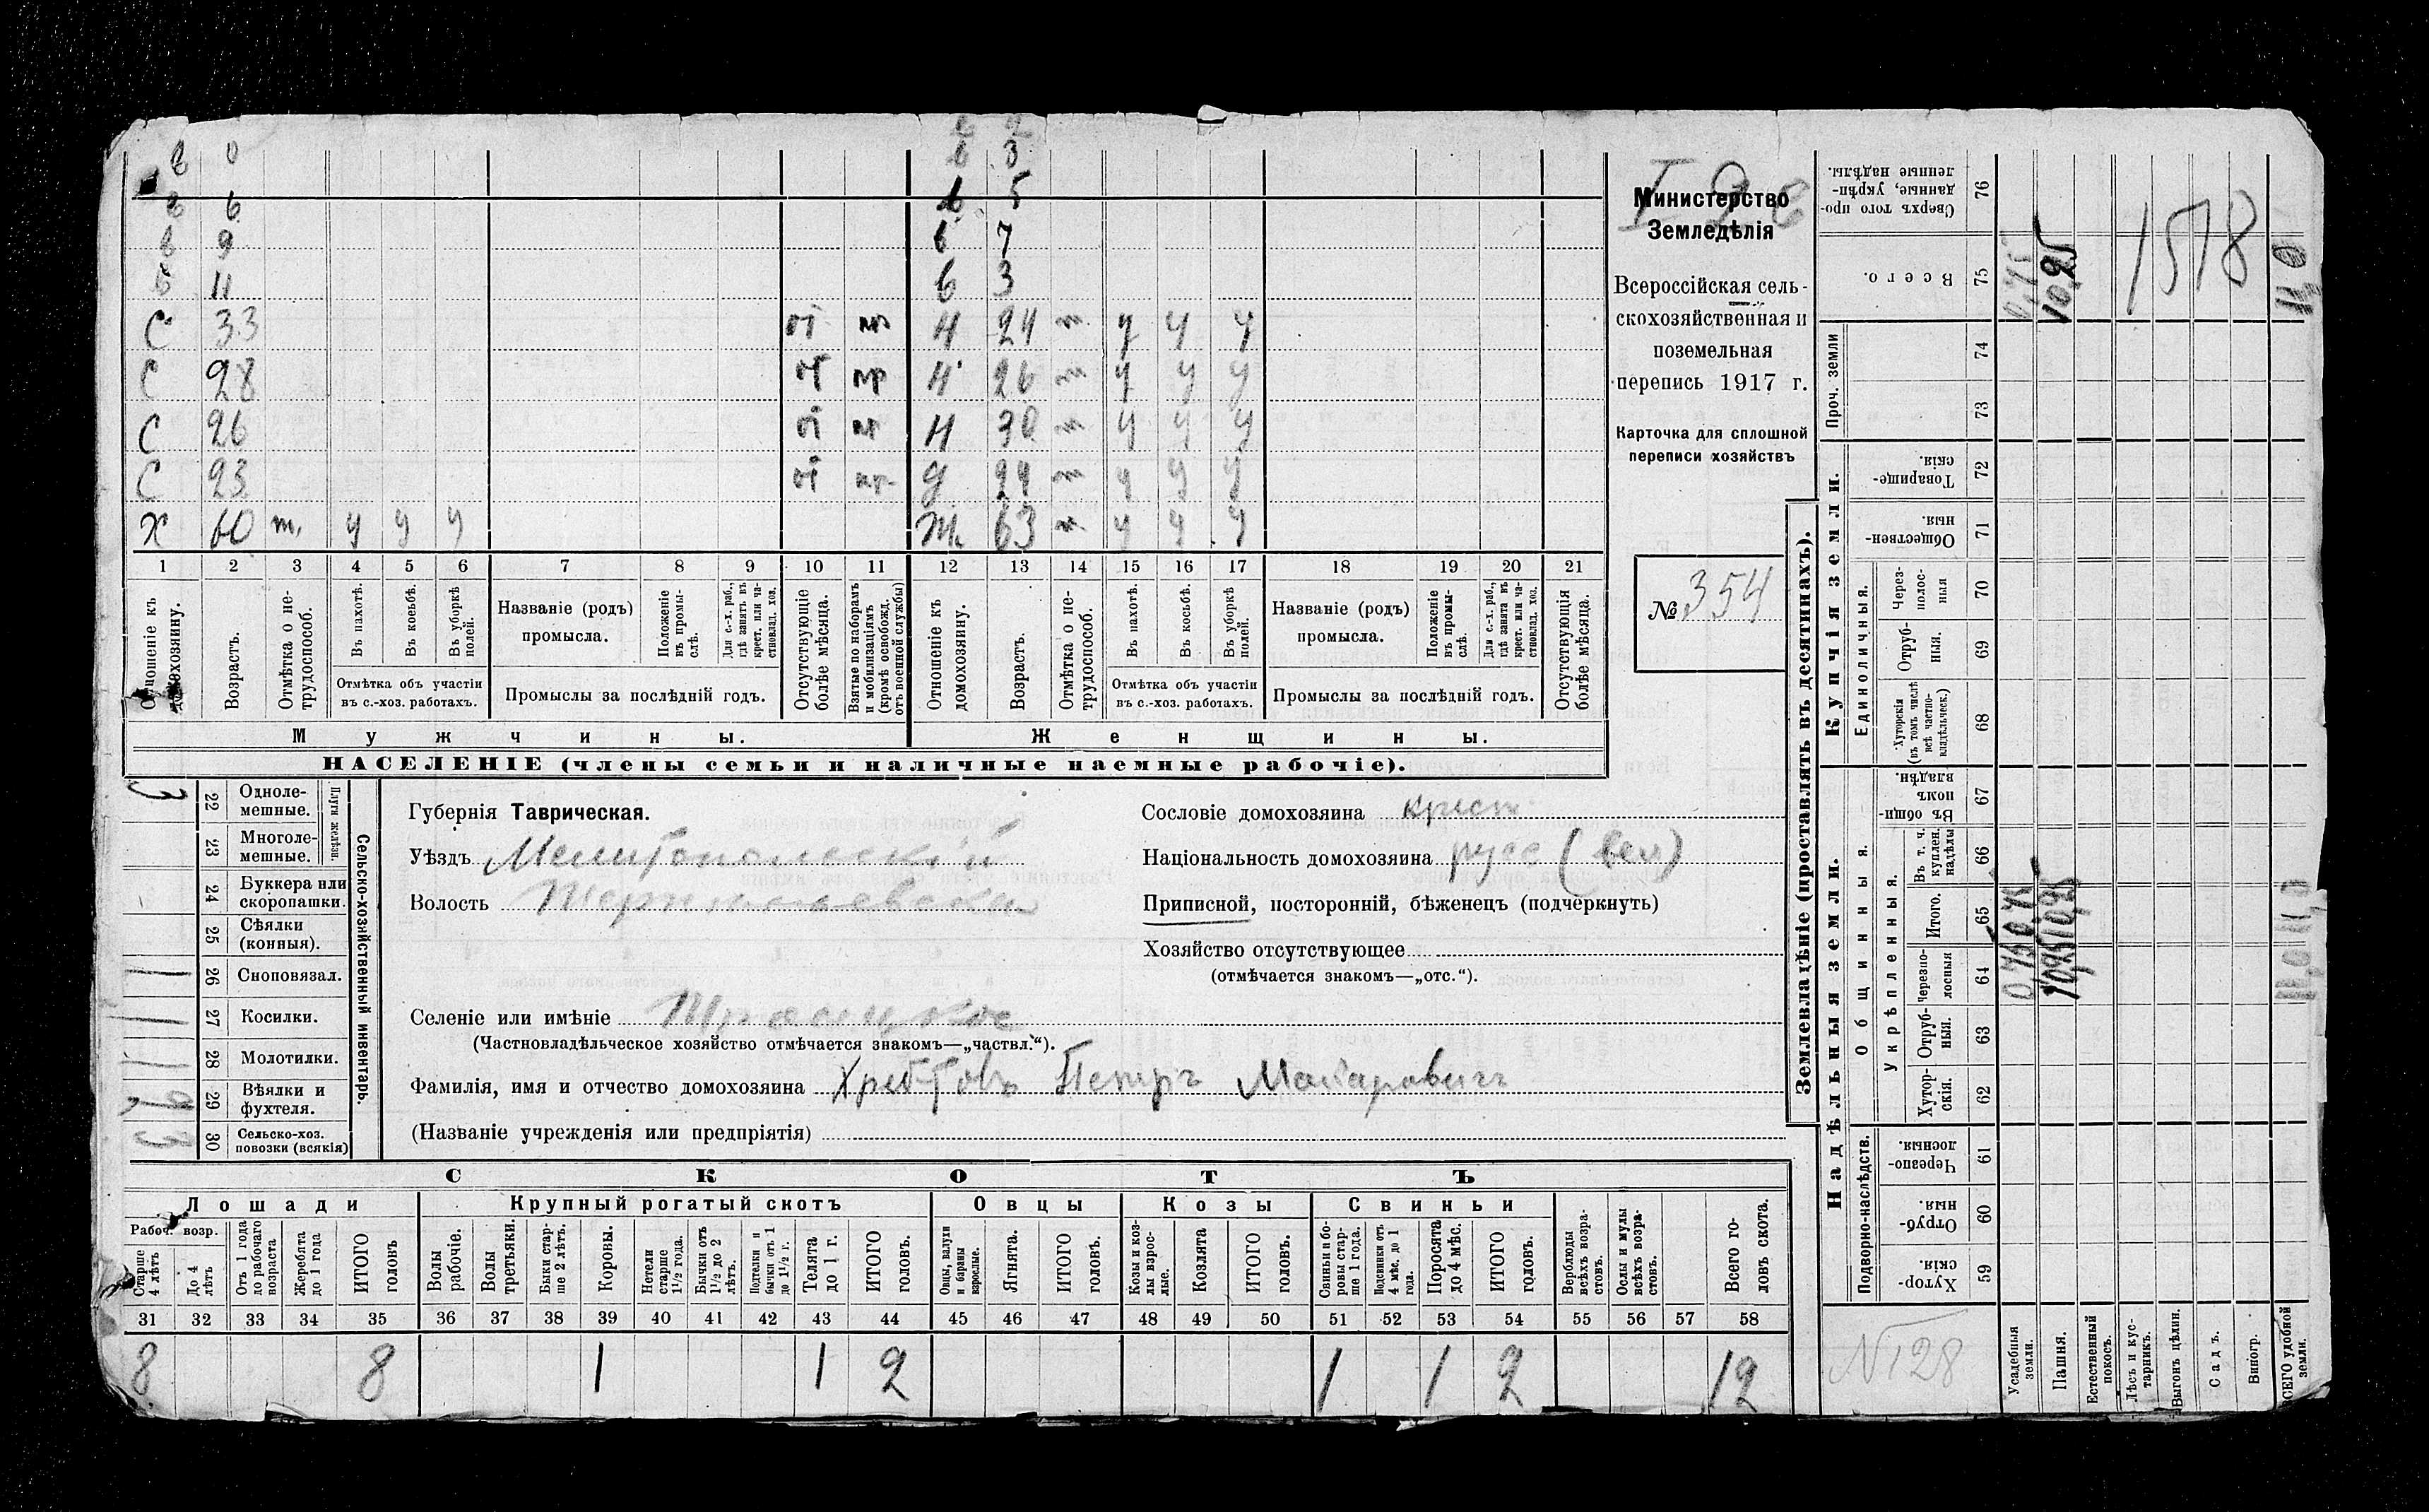 в 0 в 2
в 3
в 6 в 5
в 9 в 7
в 11 в 3
С 33 от мр Н 24 т. у у у
С 28 от мр Н 26 т у у у
С 26 от мр Н 30 т у у у
С 23 от мр. д 24 т у у у
Х 60 т. у у у Ж. 63 т. у у у
1 2 3 4 5 6 7 8 9 10 11 12 13 14 15 16 17 18 19 20 21
Отношеніе къ домохозяину.
Возрастъ.
Отмѣтка о не-трудоспособ.
Въ пахотѣ.
Въ косьбѣ.
Въ уборкѣ полей.
Отмѣтка объ участіи
въ с.-хоз. работахъ.
Названіе (родъ)
промысла.
Положеніе въ промы-слѣ.
Для с.-х. раб., гдѣ занятъ въ крест. или ча-стновлад. хоз.
Промыслы за послѣдній годъ.
Отсутствующіе болѣе мѣсяца.
Взятые по наборамъ и мобилизаціямъ (кромѣ освобожд. отъ военной службы)
Отношеніе къ домохозяину.
Возрастъ.
Отмѣтка о не-трудоспособ.
Въ пахотѣ.
Въ косьбѣ.
Въ уборкѣ полей.
Отмѣтка объ участіи
въ с.-хоз. работахъ.
Названіе (родъ)
промысла.
Положеніе въ промы-слѣ.
Для с.-х. раб., гдѣ занята въ крест. или ча-стновлад. хоз.
Промыслы за послѣдній годъ.
Отсутствующія болѣе мѣсяца.
Мужчины.
Женщины.
НАСЕЛЕНІЕ (члены семьи и наличные наемные рабочіе).
Министерство
Земледѣлія
Всероссійская сель-
скохозяйственная и
поземельная
перепись 1917 г.
Карточка для сплошной
переписи хозяйствъ
№ 354
Сельско-хозяйственный инвентарь.
Плуги желѣзн.
3 22 Одноле-мешные.
23 Многоле-мешные.
24 Буккера или скоропашки.
25 Сѣялки (конныя).
1 26 Сноповязал.
1 27 Косилки.
1 28 Молотилки.
29 Вѣялки и фухтеля.
3 30 Сельско-хоз. повозки (всякія)
Губернія Таврическая.
Уѣздъ Мелитопольскій
Волость
Селеніе или имѣніе
(Частновладѣльческое хозяйство отмѣчается знакомъ—„частвл.“).
Фамилія, имя и отчество домохозяина Хребтовъ Петръ Макаровичъ
(Названіе учрежденія или предпріятія)
Сословіе домохозяина крест
Національность домохозяина русс (вел)
Приписной, посторонній, бѣженецъ (подчеркнуть)
Хозяйство отсутствующее
(отмѣчается знакомъ—„отс.“).
СКОТЪ
Лошади
Крупный рогатый скотъ
Овцы
Козы
Свиньи
Рабоч. возр.
Старше 4 лѣтъ
До 4 лѣтъ
Отъ 1 года до рабочаго возраста
Жеребята до 1 года
ИТОГО головъ
Волы рабочіе.
Волы третьяки.
Быки стар-ше 2 лѣтъ.
Коровы.
Нетели старше 1½ года.
Бычки отъ 1½ до 2 лѣтъ.
Подтелки и бычки отъ 1 до 1½ г.
Телята до 1 г.
ИТОГО головъ.
Овцы, валухи и бараны взрослые.
Ягнята.
ИТОГО головъ.
Козы и коз-лы взрос-лые.
Козлята
ИТОГО головъ.
Свиньи и бо-ровы стар-ше 1 года.
Подсвинки отъ 4 мѣс. до 1 года.
Поросята до 4 мѣс.
ИТОГО головъ.
Верблюды всѣхъ возра-стовъ.
Ослы и мулы всѣхъ возра-стовъ.
Всего го-ловъ скота.
31 32 33 34 35 36 37 38 39 40 41 42 43 44 45 46 47 48 49 50 51 52 53 54 55 56 57 58
8 8 1 1 2 1 1 2 12
Землевладѣніе (проставлять въ десятинахъ).
Купчія земли.
Надѣльныя земли.
Сверхъ того про-данные, укрѣп-ленные надѣлы. 76
Всего. 75 0,75 10,25 11,0
1578
Проч. земли 74 73
Товарище-скія. 72
Обществен-ныя. 71
Единоличныя.
Через-полос-ныя 70
Отруб-ныя. 69
Хуторскія (въ томъ числѣ всѣ частно-владѣльческ.) 68
Общинныя.
Въ общин-номъ владѣн. 67
Въ т. ч. куплен. надѣлы 66
Укрѣпленныя.
Итого. 65 0,75 10,25 11,0
Черезпо-лосныя 64 0,75 10,25 11,0
Отруб-ныя. 63
Хутор-скія. 62
Подворно-наслѣдств.
Черезпо-лосныя. 61
Отруб-ныя. 60
Хутор-скія. 59
N 128
Усадебныя земли.
Пашня.
Естественный покосъ.
Лѣсъ и кус-тарникъ.
Выгонъ цѣлин.
Садъ.
Виногр.
ВСЕГО удобной земли.